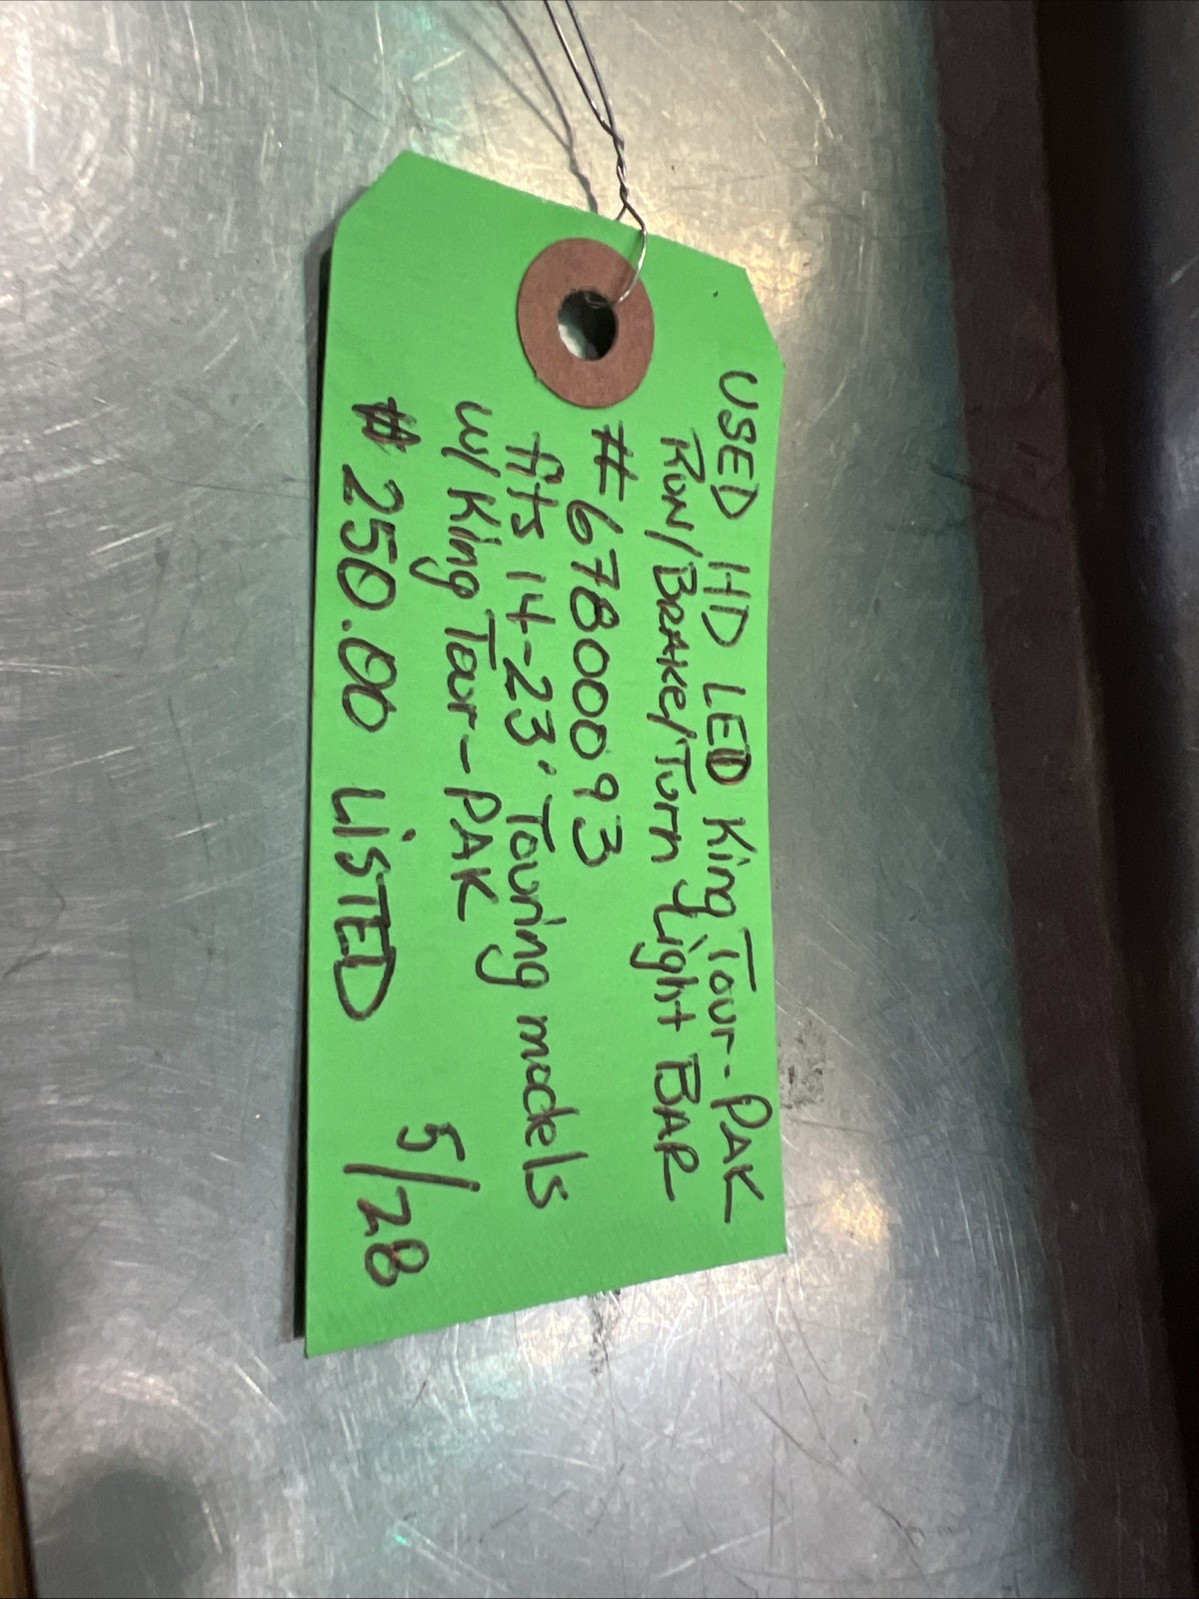 USED HD LED King Tour-PAK
Run/Brake/Turn Light BAR
#67800093
fits 14-23' Touring models
w/King Tour-PAK
$250.00 LiSTED 5/28